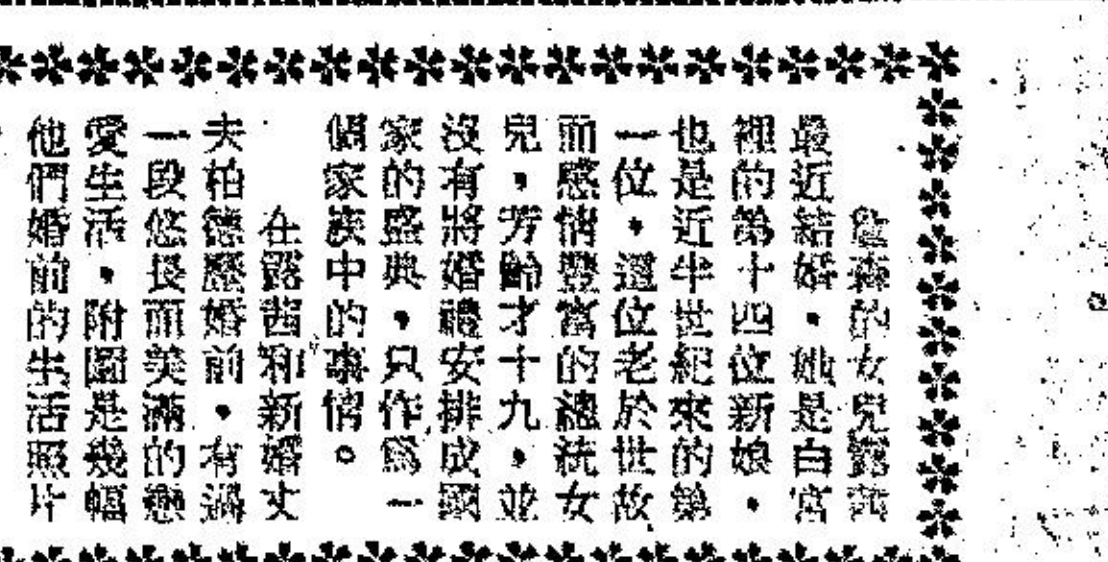 詹森的女兒露茜
最近結婚，她是白宮
裡的第十四位新娘，
也是近半世紀來的第
一位，這位老於世故
而感情豐富的總統女
兒，芳齡才十九，並
沒有將婚禮安排成國
家的盛典，只作爲一
個家族中的事情。
在露茜和新婚丈
夫柏德歷婚前，有過
一段悠長而美滿的戀
愛生活，附圖是幾幅
他們婚前的生活照片